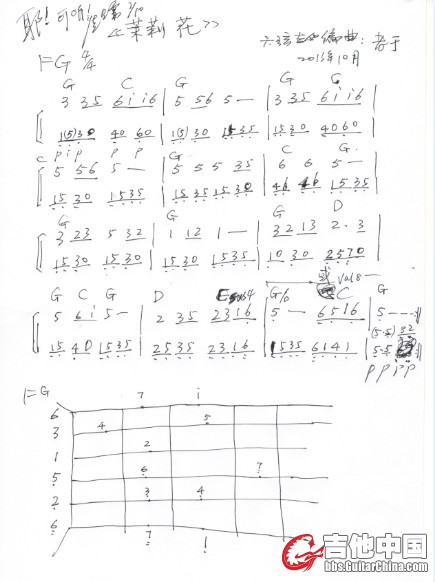 耶! 可听
《茉莉花》
六弦 编曲:老于
2013年10月
1=G 4/4
G C G G C
3 35 6i i6 | 5 56 5 — | 3 35 6i i6 |
1(5)30 40 60 | 1(5)30 1535 | 1530 4060
C p i p p p G. C G
5 56 5 — | 5 5 5 35 | 6 6 5 — |
1530 1535 | 1535 1530 | 1535
G G G D
3 23 5 32 | 1 12 1 — | 3213 2·3
1530 1530 | 1530 1535 | 1030 2570
或
G C G D Esus4 G C G
5 6i 5 — | 2 35 2316 | 5 — 6516 | 5 - - -
(5·5) 32
1540 1535 | 2535 2316 | 1535 6141 | 5·5
P P P P
1=G
7 i
6
3 4 5
1 2
5 6 7
2 3 4
6 7 1
吉他中国
bbs.GuitarChina.com